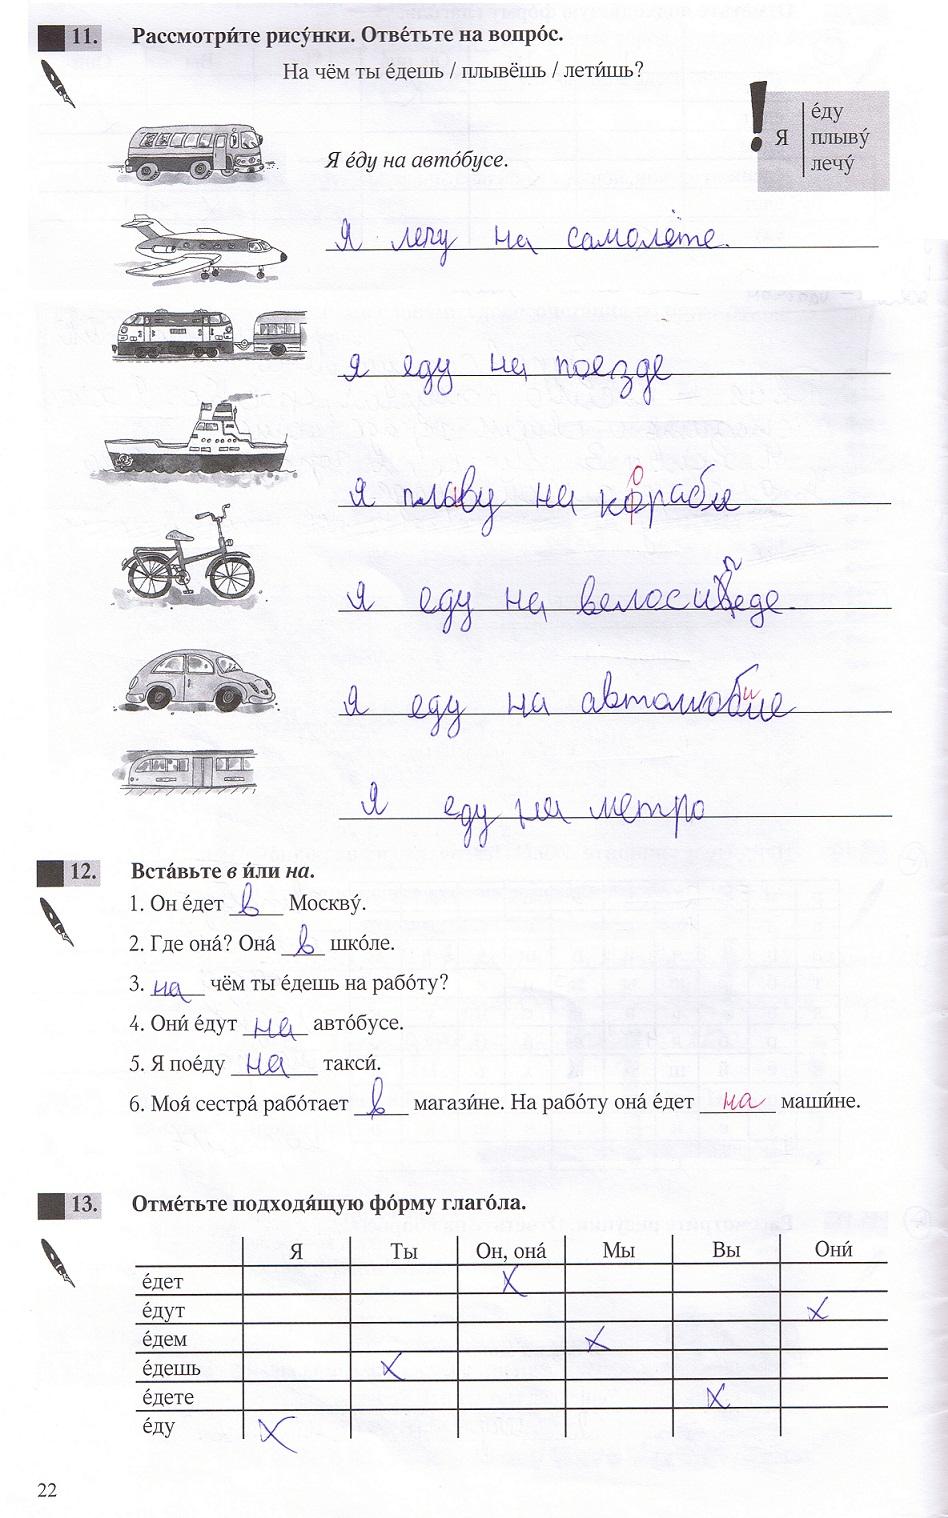 11. Рассмотри́те рису́нки. Отве́тьте на вопро́с.
На чём ты е́дешь / плывёшь / лети́шь?
Я е́ду
плыву́
лечу́
Я е́ду на авто́бусе.
Я лечу на самолёте.
Я еду на поезде
Я плыву на корабле
Я еду на велосипеде.
Я еду на автомобиле
Я еду на метро
12. Вста́вьте в и́ли на.
1. Он е́дет в Москву́.
2. Где она́? Она́ в шко́ле.
3. на чём ты е́дешь на рабо́ту?
4. Они́ е́дут на авто́бусе.
5. Я пое́ду на такси́.
6. Моя́ сестра́ рабо́тает в магази́не. На рабо́ту она́ е́дет на маши́не.
13. Отме́тьте подходя́щую фо́рму глаго́ла.
Я Ты Он, она́ Мы Вы Они́
е́дет X
е́дут X
е́дем X
е́дешь X
е́дете X
е́ду X
22